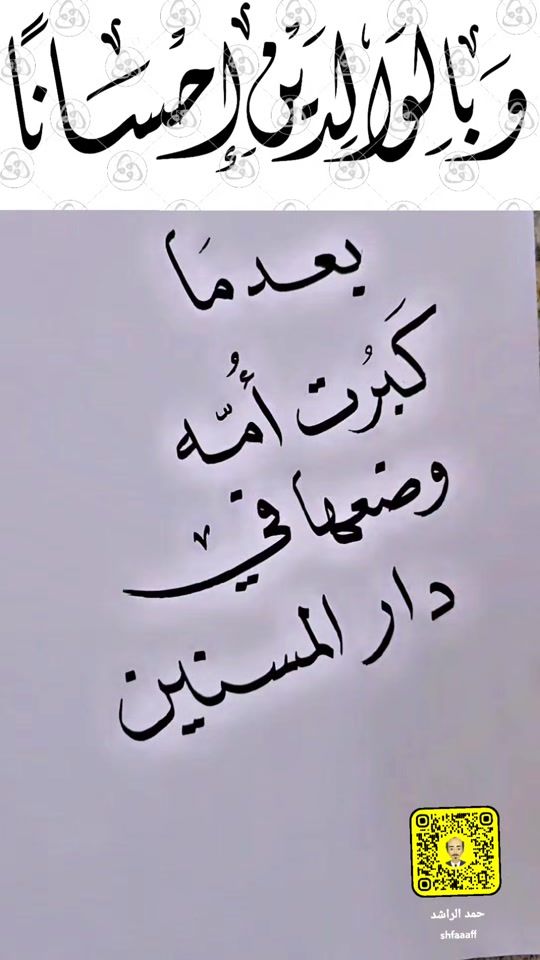 وَبِالوَالِدَيْنِ إِحْسَانًا
بعدمَا
كَبُرت أُمّه
وضعها في
دار المسنين
حمد الراشد
shfaaaff